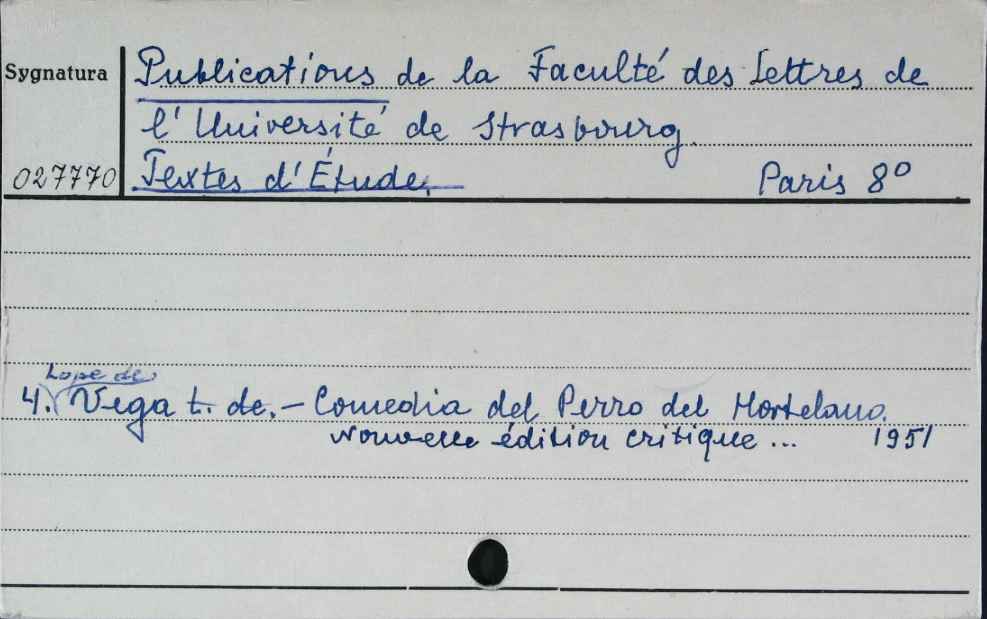 Sygnatura
Publications de la Faculté des Lettres de
l'Université de Strasbourg.
027770
Textes d'Étude. Paris 8°
Lope de
4. Vega t. de. - Comedia del Perro del Hortelano.
Nouvelle édition critique ... 1951